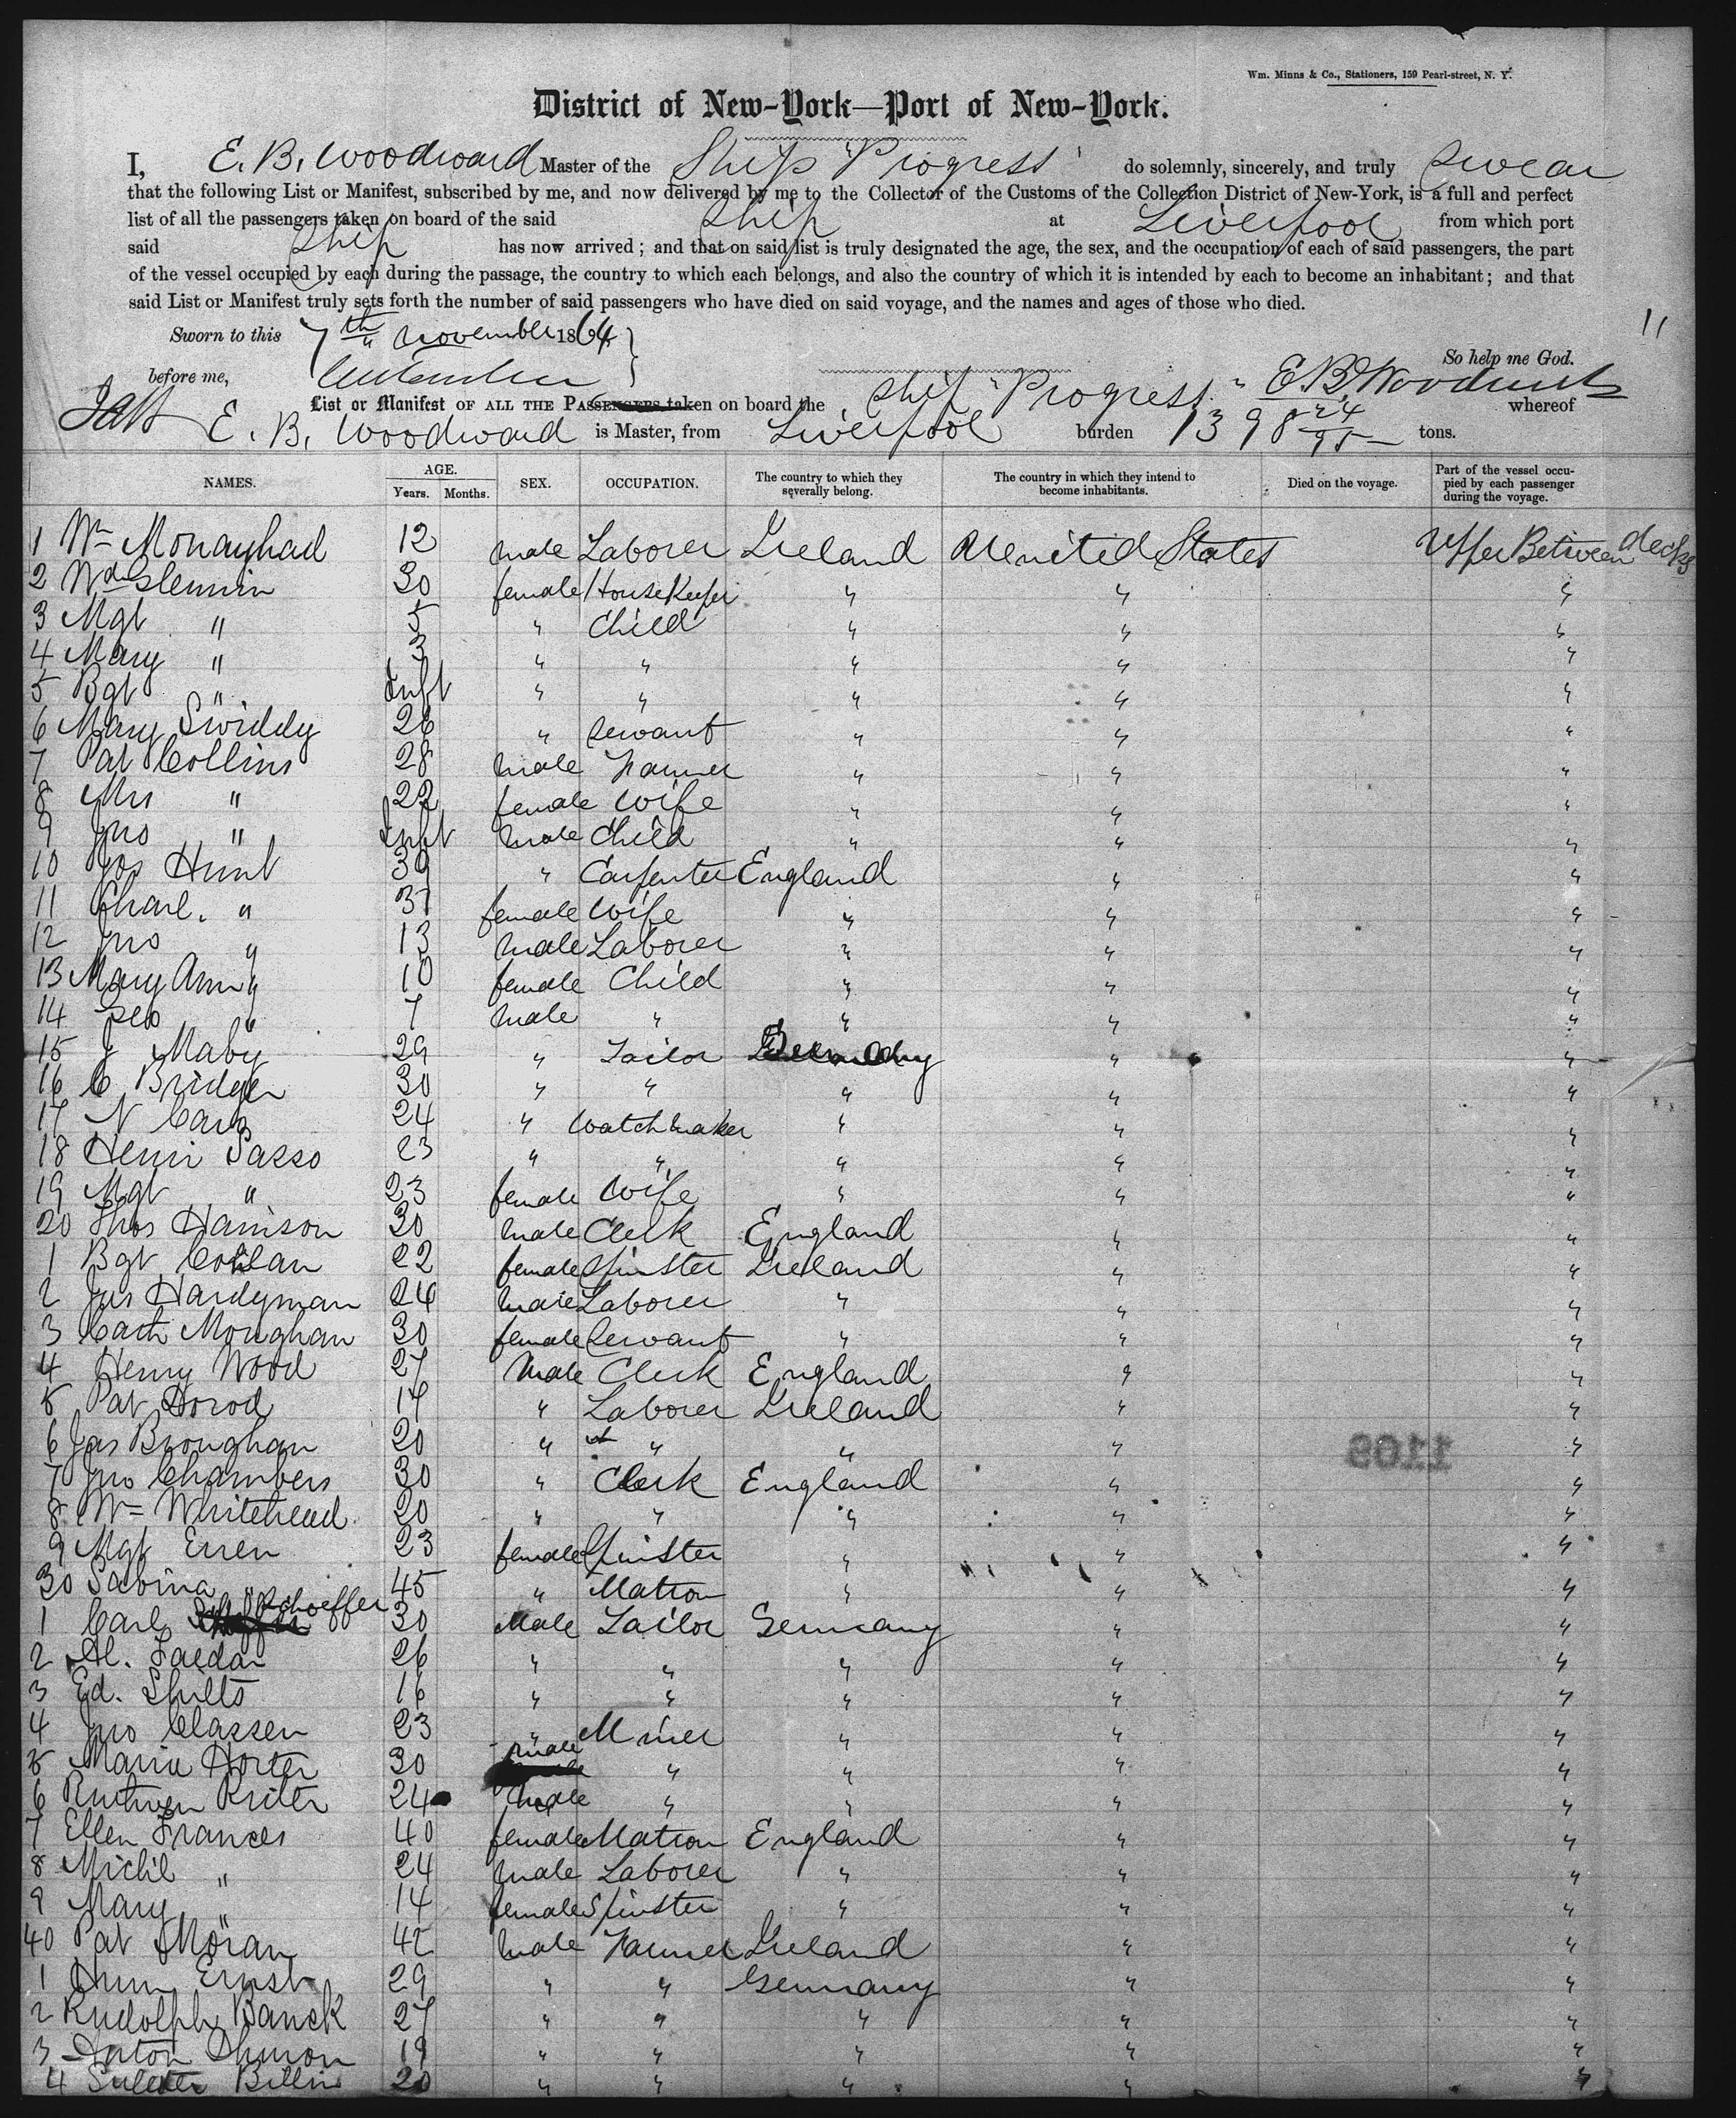 Wm. Minns & Co., Stationers, 159 Pearl-street, N. Y.
District of New-York—Port of New-York.
I, E. B. Woodward Master of the Ship "Progress" do solemnly, sincerely, and truly swear
that the following List or Manifest, subscribed by me, and now delivered by me to the Collector of the Customs of the Collection District of New-York, is a full and perfect
list of all the passengers taken on board of the said Ship at Liverpool from which port
said Ship has now arrived; and that on said list is truly designated the age, the sex, and the occupation of each of said passengers, the part
of the vessel occupied by each during the passage, the country to which each belongs, and also the country of which it is intended by each to become an inhabitant; and that
said List or Manifest truly sets forth the number of said passengers who have died on said voyage, and the names and ages of those who died.
11
Sworn to this 7th November 1864
So help me God.
before me,
E. B. Woodward
List or Manifest OF ALL THE PASSENGERS taken on board the Ship "Progress" whereof
E. B. Woodward is Master, from Liverpool burden 1398 24/95 tons.
NAMES. AGE. Years. Months. SEX. OCCUPATION. The country to which they severally belong. The country in which they intend to become inhabitants. Died on the voyage. Part of the vessel occupied by each passenger during the voyage.
1 Wm Monaghad 12 male Laborer Ireland United States Upper Between decks
2 Wd Glennin 30 female HouseKeeper " " "
3 Mgt " 5 " Child " " "
4 Mary " 3 " " " " "
5 Bgt " Inft " " " " "
6 Mary Swiddy 26 " Servant " " "
7 Pat Collins 28 male Farmer " " "
8 Mrs " 22 female Wife " " "
9 Jno " Inft male Child " " "
10 Jos Hunt 39 " Carpenter England " "
11 Charl. " 37 female Wife " " "
12 Jno " 13 male Laborer " " "
13 Mary Ann " 10 female Child " " "
14 Geo " 7 male " " " "
15 J Maby 29 " Tailor " "
16 C Bridger 30 " " " " "
17 N 24 " Watchmaker " " "
18 Henri Sasso 23 " " " " "
19 Mgt " 23 female Wife " " "
20 Thos Harrison 30 male Clerk England " "
1 Bgt 22 female Spinster Ireland " "
2 Jas Hardyman 24 male Laborer " " "
3 Cath Monghan 30 female Servant " " "
4 Henry Wood 27 Male Clerk England " "
5 Pat Dorod 17 " Laborer Ireland " "
6 Jas Broughan 20 " " " " "
7 Jno Chambers 30 " Clerk England " "
1109
8 Wm Whitehead 20 " " " " "
9 Mgt Erren 23 female Spinster " " "
30 Sabina " 45 " Matron " " "
1 Carl Schoeffer 30 Male Tailor Germany " "
2 Al. Faedar 26 " " " " "
3 Ed. Shilts 16 " " " " "
4 Jno Classen 23 " Miner " " "
5 Maria Horter 30 male " " " "
6 Riter 24 male " " " "
7 Ellen Frances 40 female Matron England " "
8 Michl " 24 male Laborer " " "
9 Mary " 14 female Spinster " " "
40 Pat Moran 42 male Farmer Ireland " "
1 Ernst 29 " " Germany " "
2 Rudolph Banck 27 " " " " "
3 Anton Shmon 19 " " " " "
4 Billin 20 " " " " "